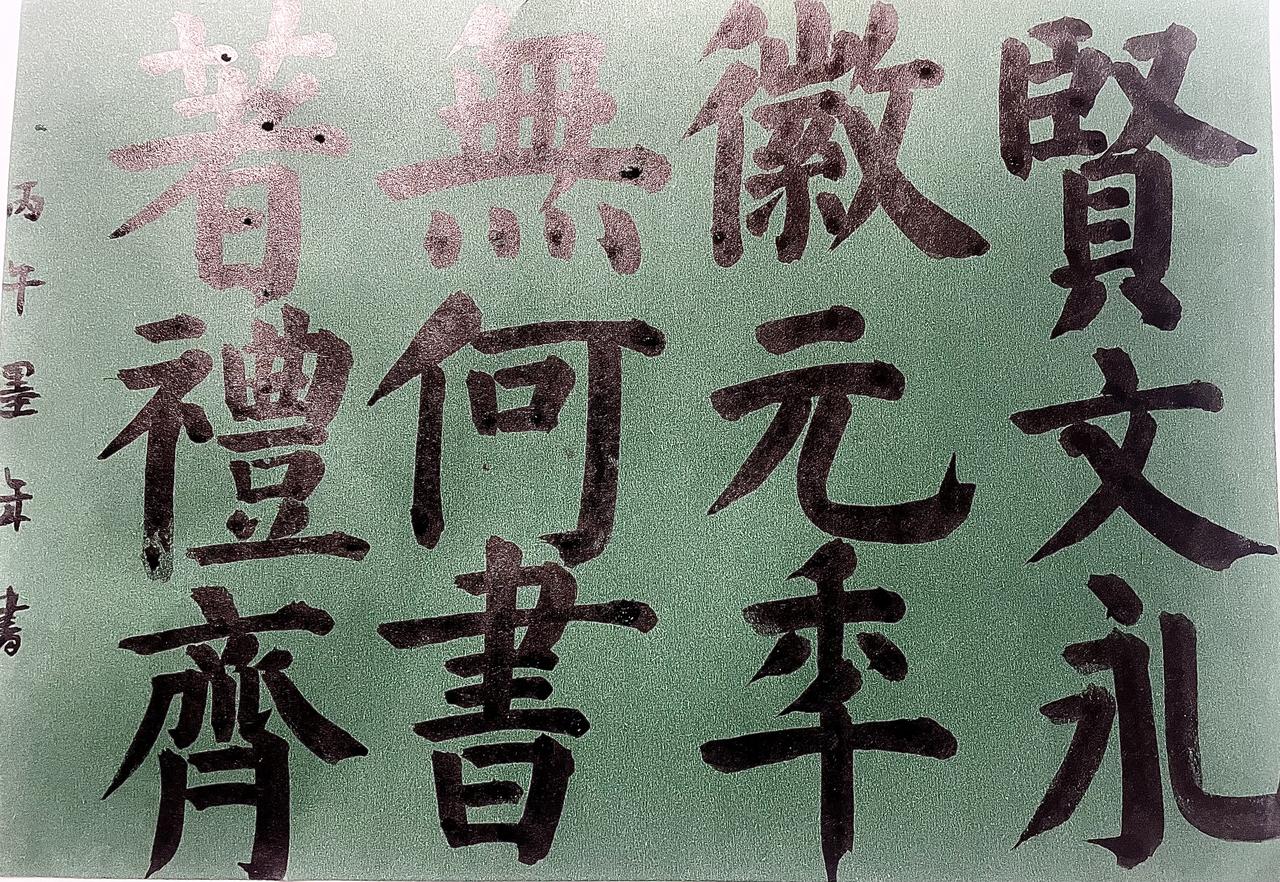 賢文礼
徽元率
無何書
著禮齊
丙午墨年書